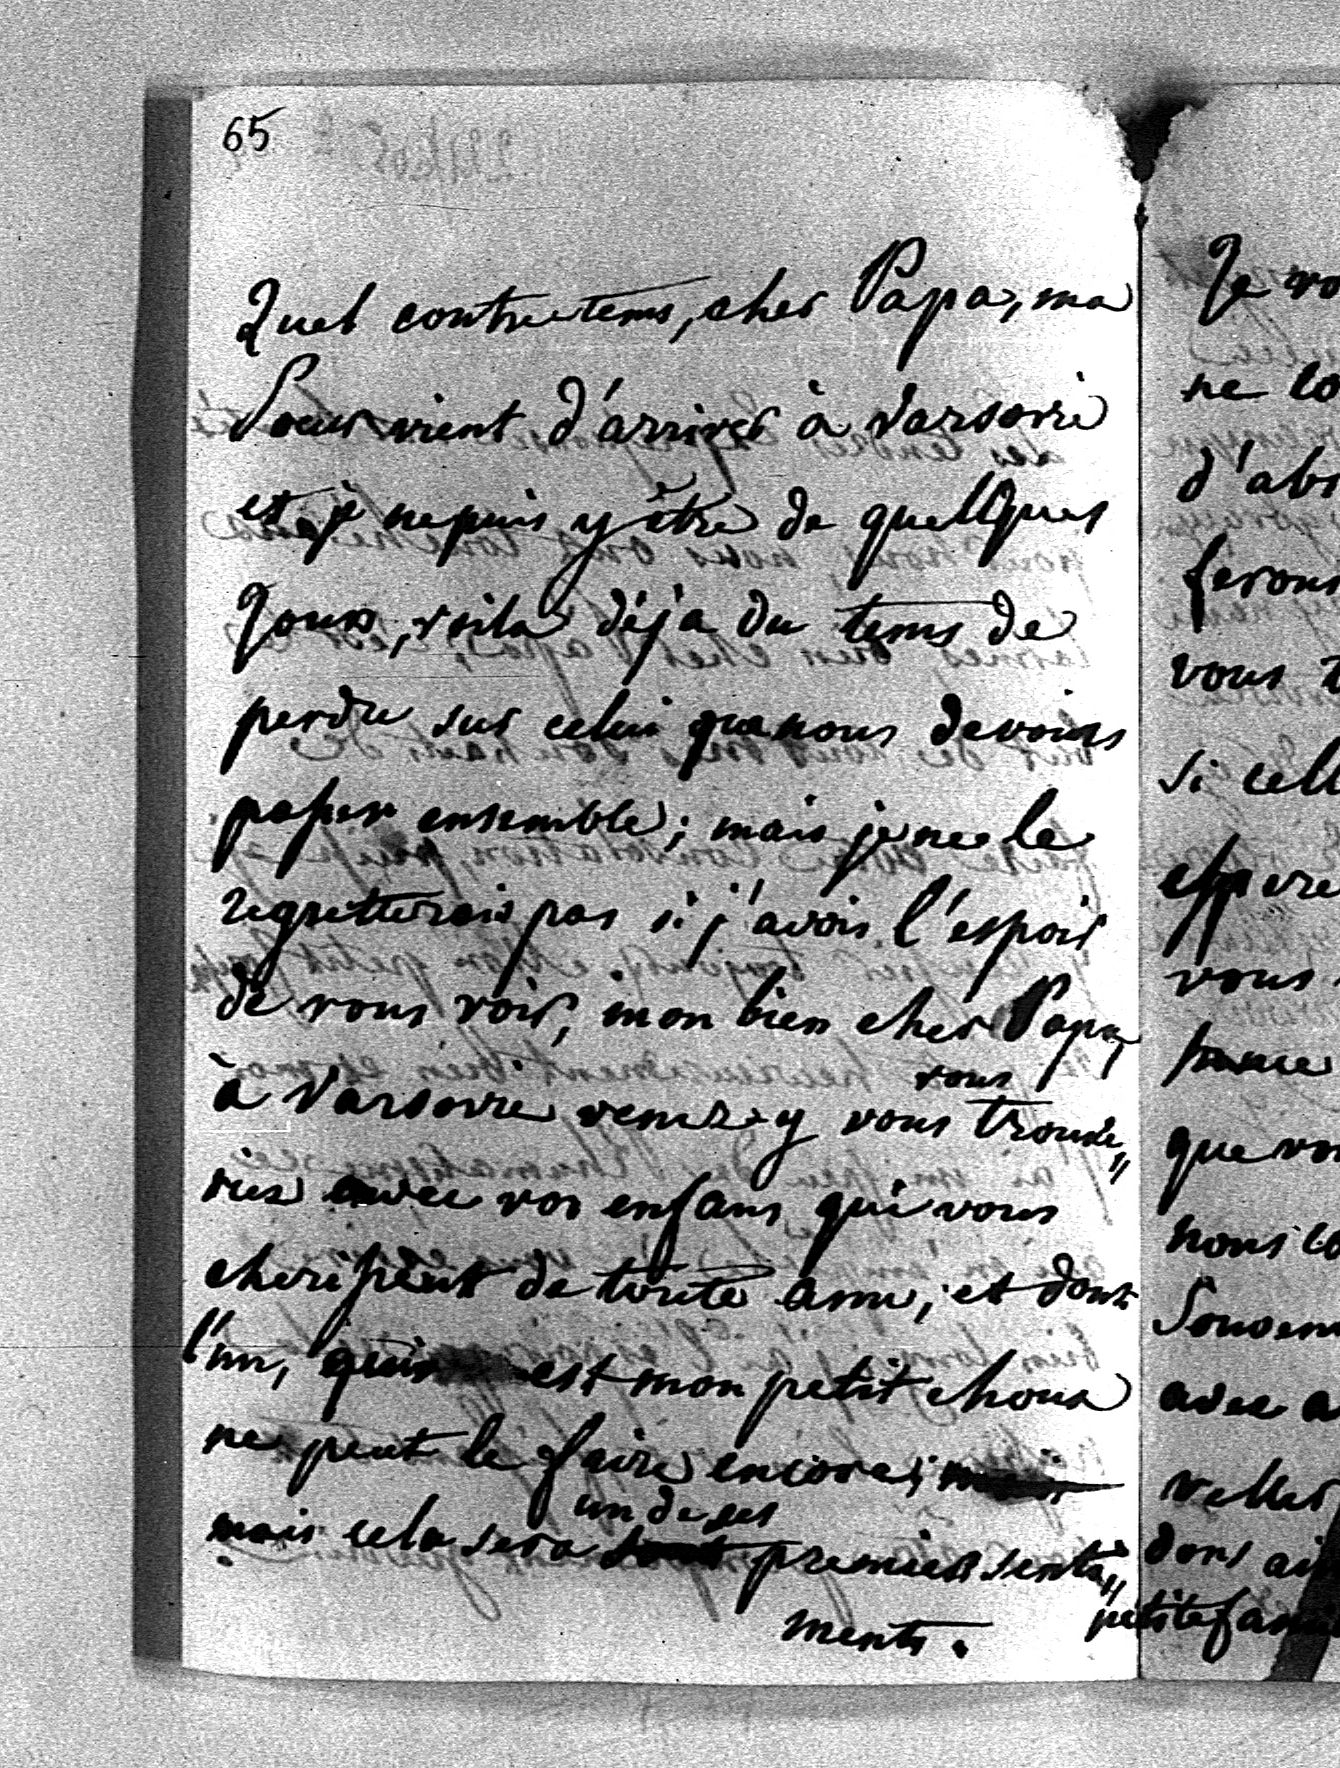 65
Quel contretems, cher Papa, ma
Soeur vient d'arriver à Varsovie
et je ne puis y être de quellques
Jours, voila déja du tems de
perdu sur celui que nous devoins
passer ensemble; mais je ne le
regretterois pas si j'avois l'espoir
de vous voir, mon bien cher Papa,
à Varsovie venez y vous vous trouve=
ries avec vos enfans qui vous
cherissent de toute ame, et dont
l'un, qui est mon petit choux
ne peut le faire encore; mais
mais cela sera un de ses premiers senti=
ments.
Je vo
ne lo
d'abs
ferons
vous
si cell
espere
vous
que vou
nous co
Souven
avec a
velles
dons ai
petite fami